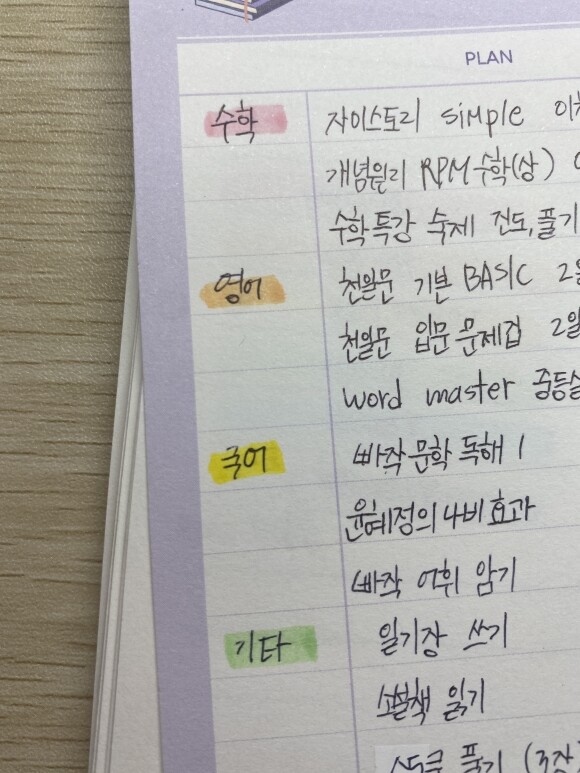 PLAN
수학 자이스토리 simple
개념원리 RPM 수학(상)
수학특강 숙제 진도, 풀기
영어 천일문 기본 BASIC 2월
천일문 입문 문제집 2월
word master 중등실
국어 빠작 문학 독해 1
윤혜정의 나비효과
빠작 어휘 암기
기타 일기장 쓰기
소설책 읽기
풀기 (3장)